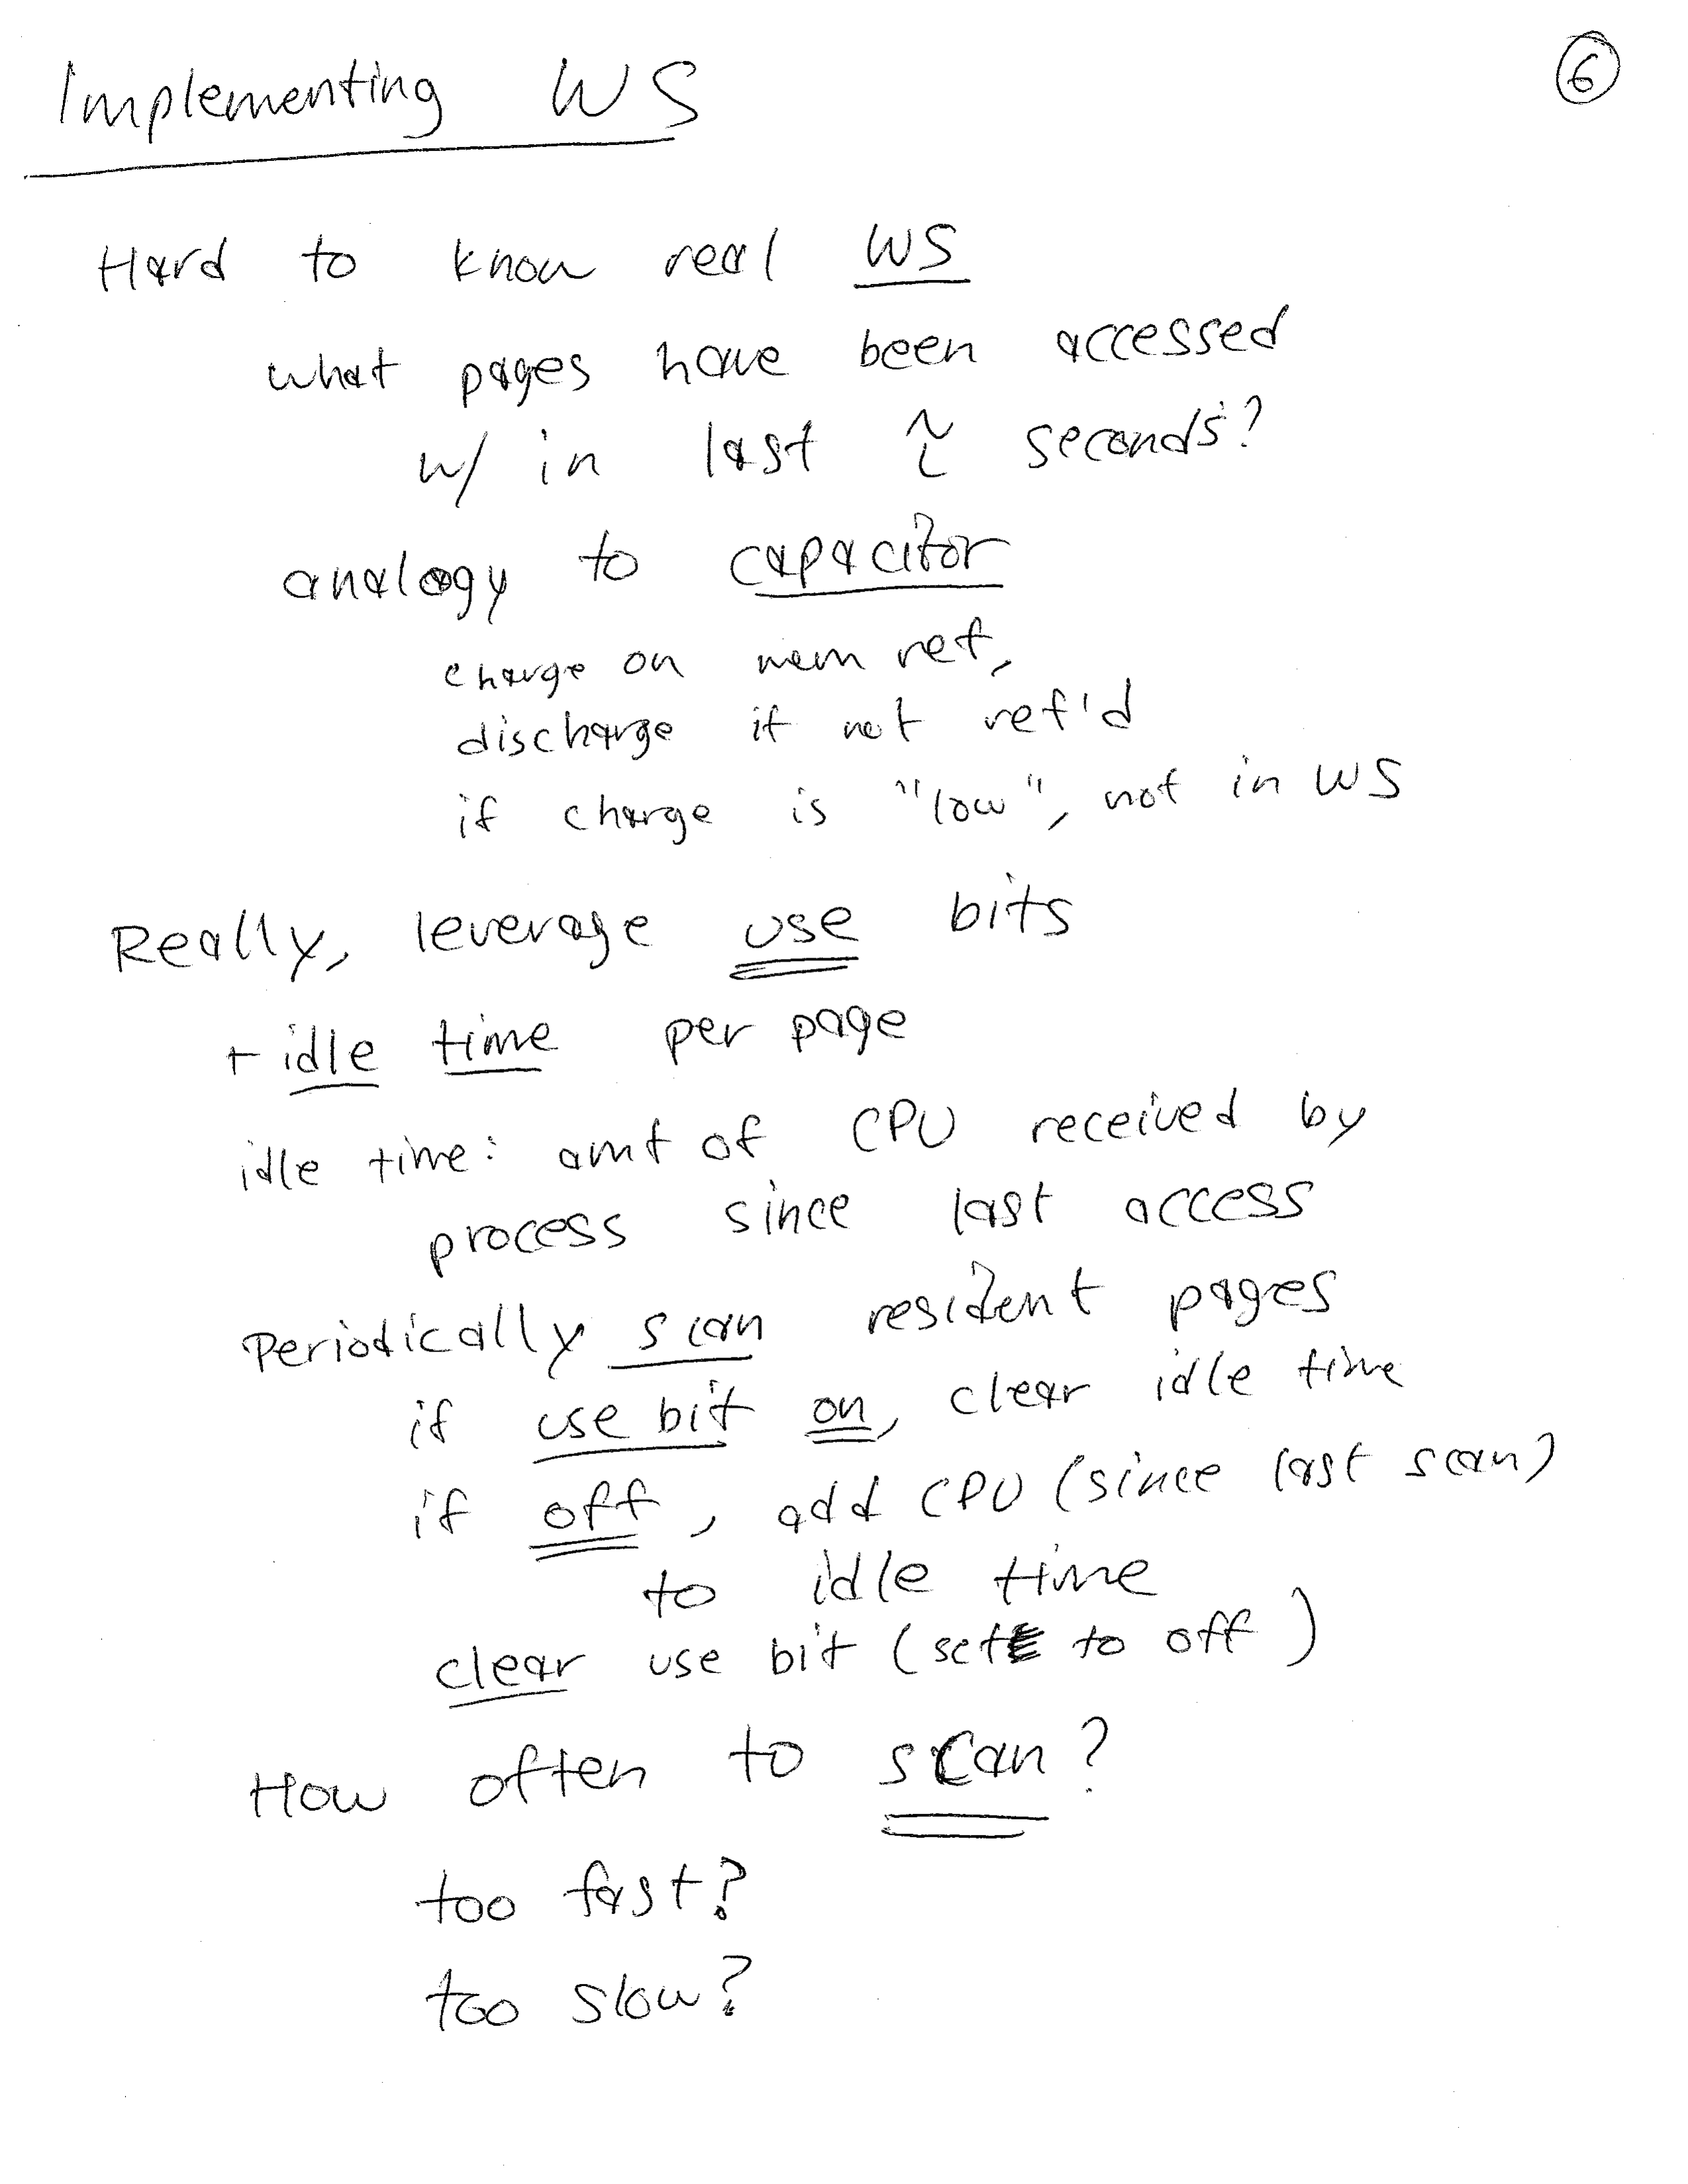 Implementing WS
6
Hard to know real WS
what pages have been accessed
w/in last τ seconds?
analogy to capacitor
charge on mem ref,
discharge if not ref'd
if charge is "low", not in WS
Really, leverage use bits
+ idle time per page
idle time: amt of CPU received by
process since last access
Periodically scan resident pages
if use bit on, clear idle time
if off, add CPU (since last scan)
to idle time
clear use bit (set to off)
How often to scan?
too fast?
too slow?